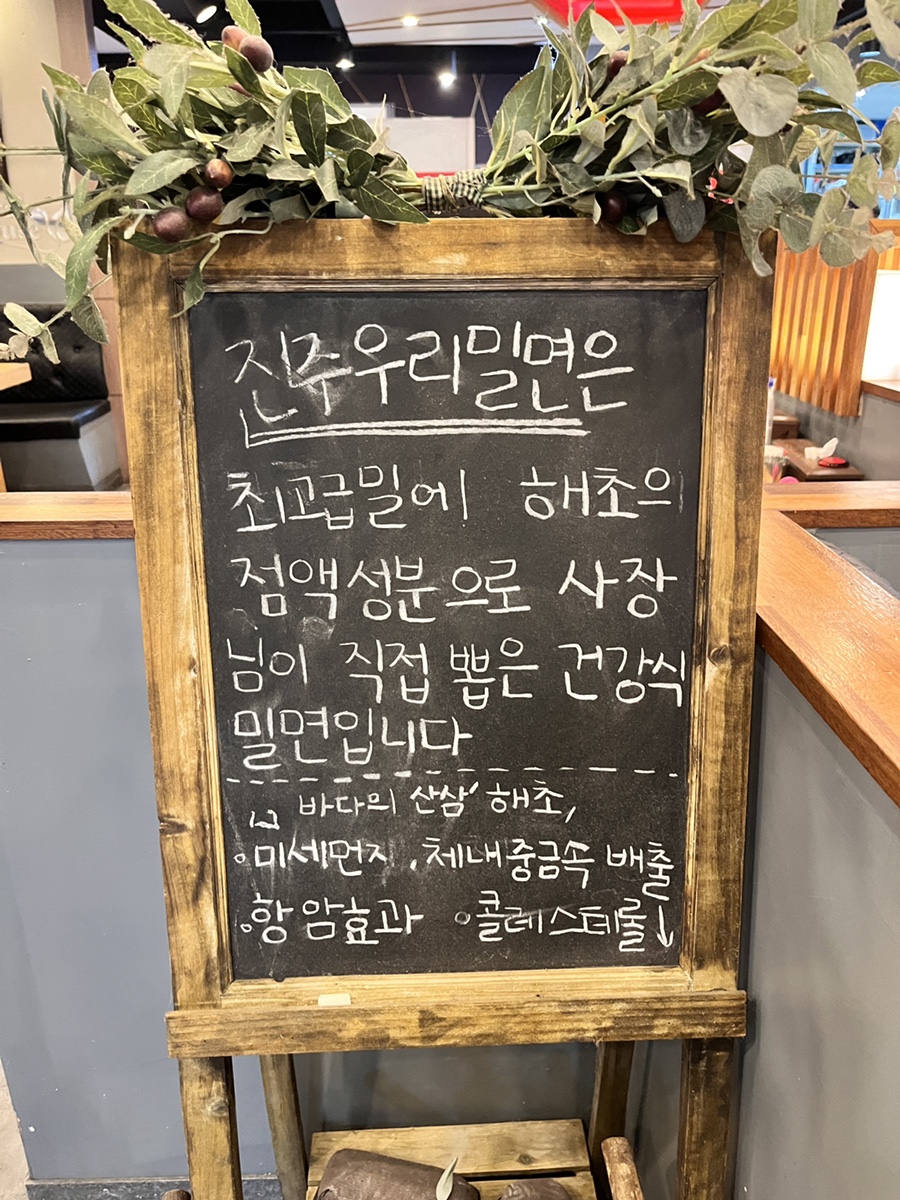 진주우리밀면은
최고급밀에 해초의
점액성분으로 사장
님이 직접 뽑은 건강식
밀면입니다
바다의 산삼' 해초,
◦미세먼지 . 체내중금속 배출
◦항암효과 ◦콜레스테롤↓